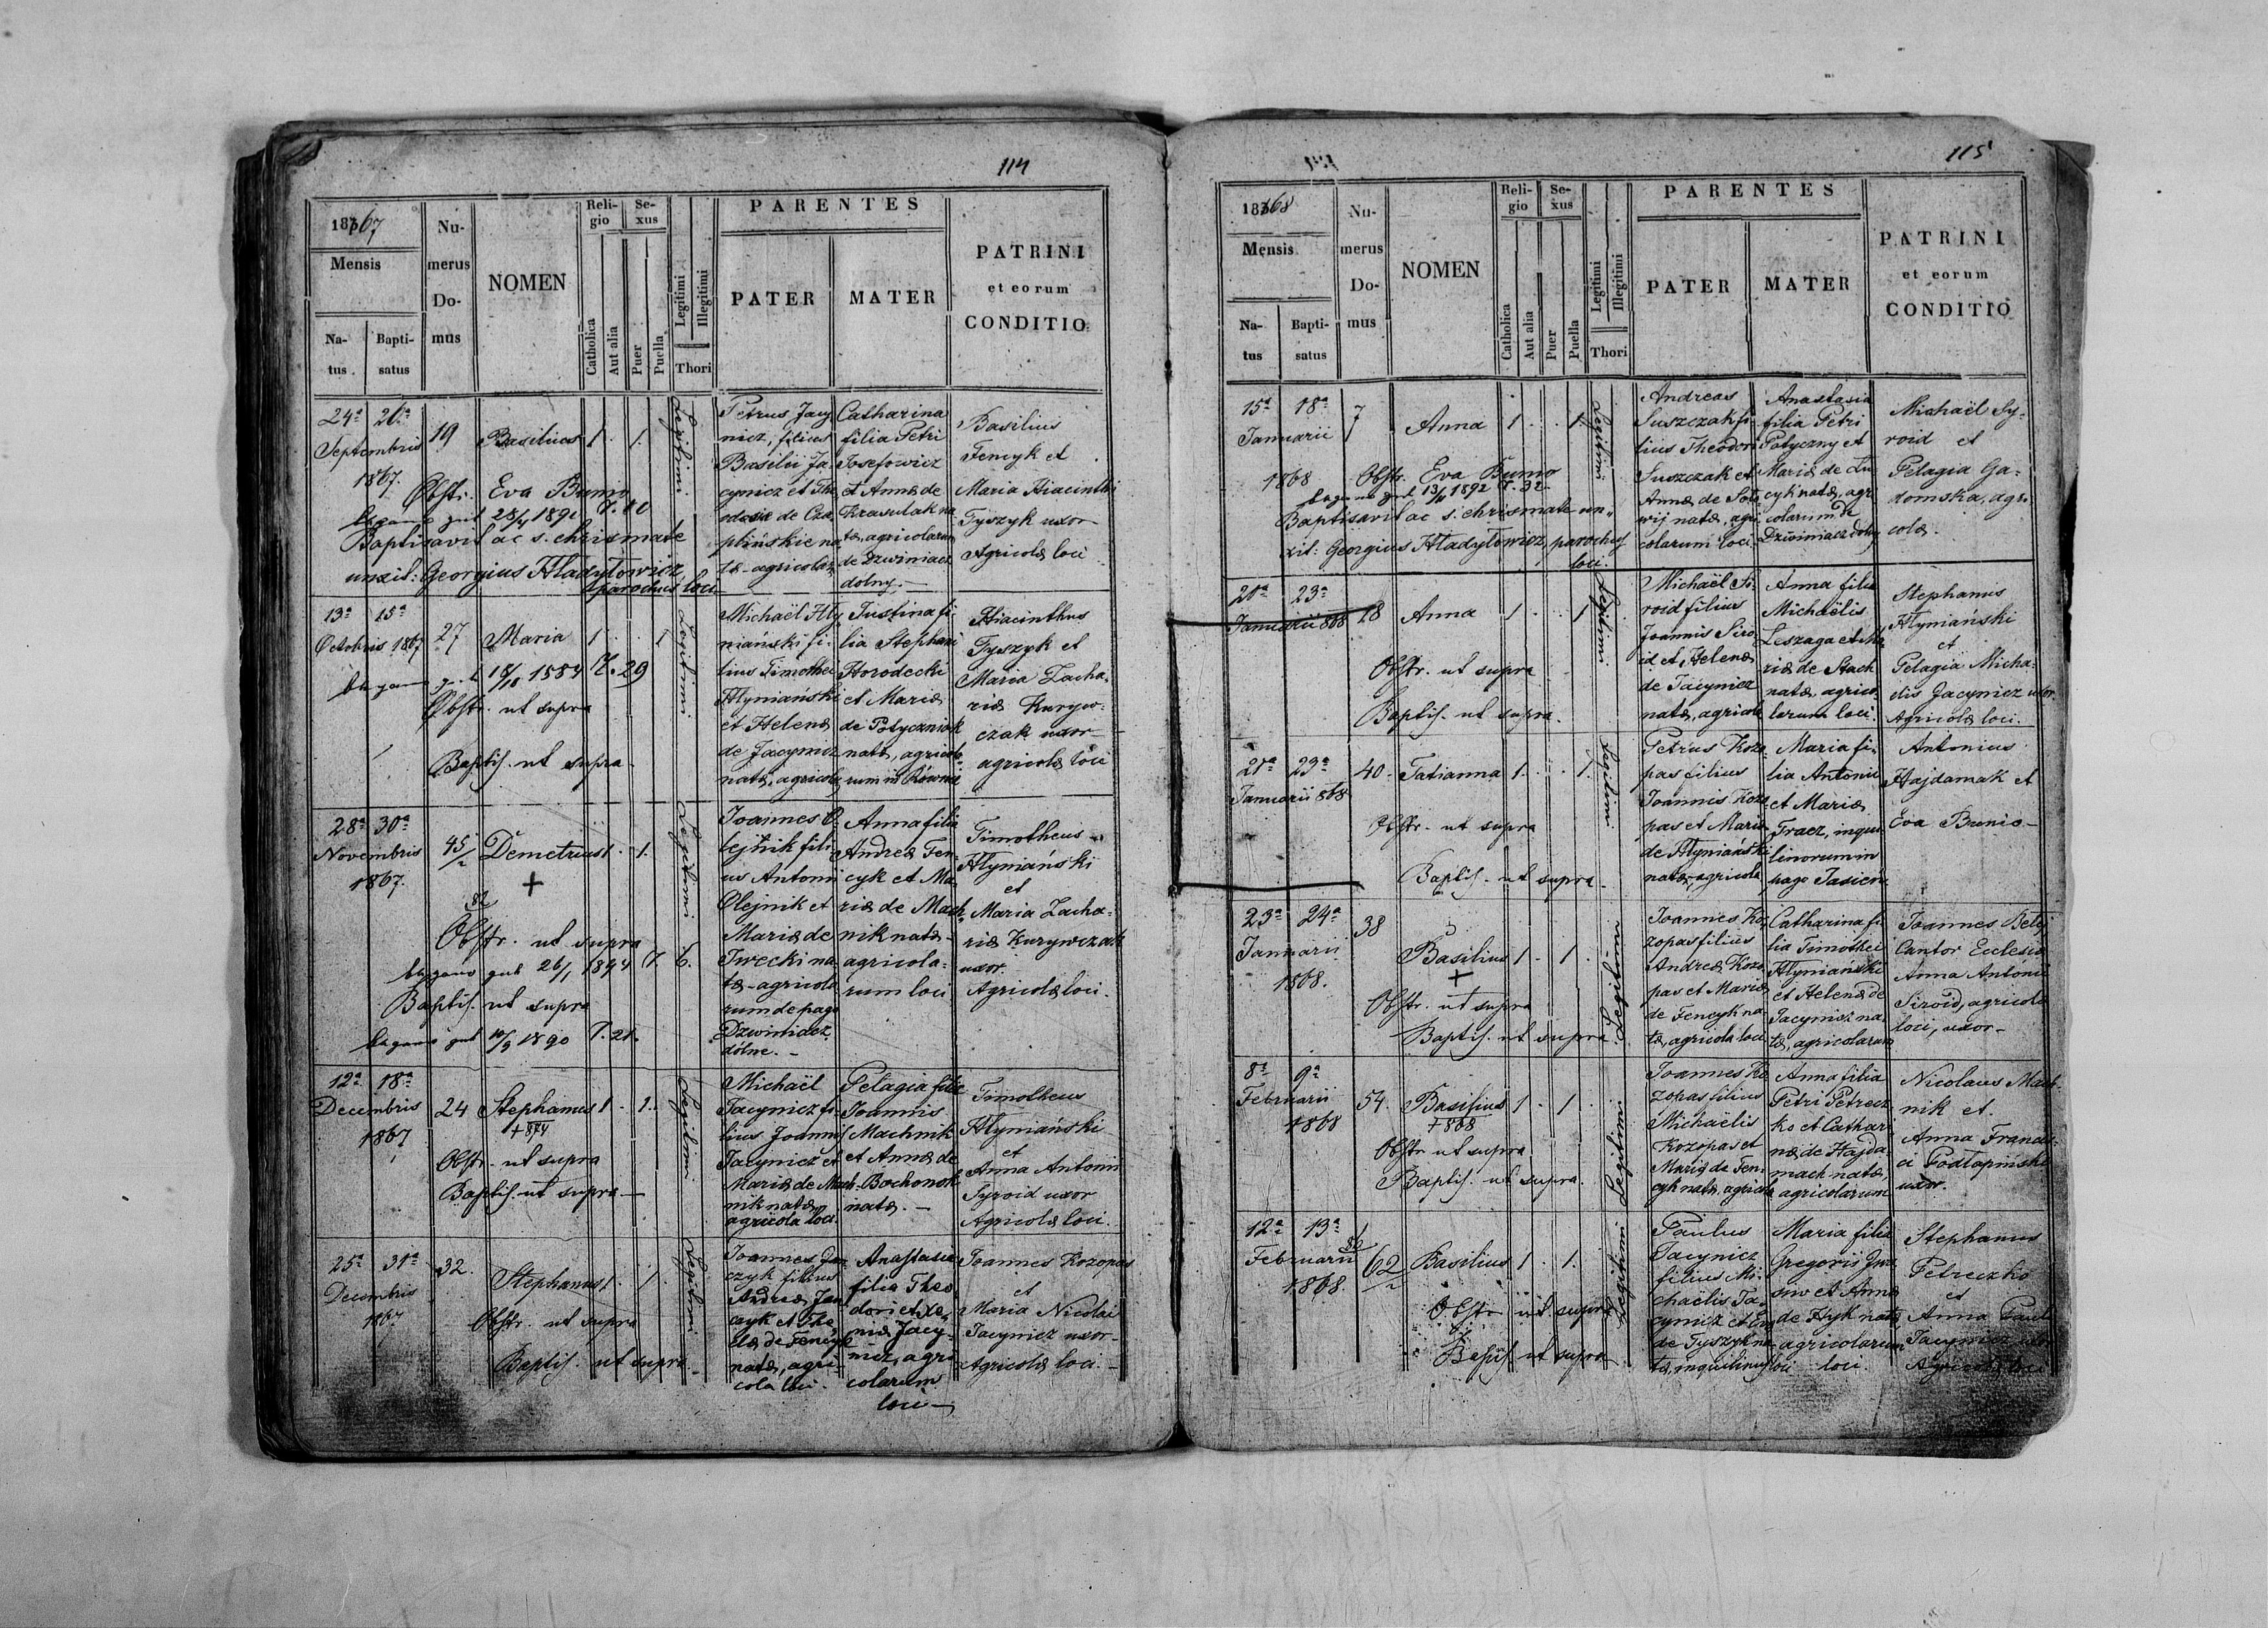 114
1867
Mensis
Na-
tus
Bapti-
satus
Nu-
merus
Do-
mus
NOMEN
Reli-
gio
Catholica
Aut alia
Se-
xus
Puer
Puella
Legitimi
Illegitimi
Thori
PARENTES
PATER
MATER
PATRINI
et eorum
CONDITIO
24a
Septembris
1867.
19
Basilius
1
1.
Legitimi
Obstr. Eva Bunio
28/4 189
Baptisavit ac s. chrismate
unxit: Georgius Hladyłowicz
parochus loci
Petrus Jacy
nicz, filius
Basilii Ja
cynicz et The
de Cza
plińskie na
tæ agricolar
Catharina
filia Petri
Josefowicz
et Annæ de
Krasulak na
tæ, agricolarum
de Dzwiniacz
dolny.
Basilius
Fencyk et
Maria Hiacinthi
Tyszyk uxor
Agricolæ loci
13a 15a
Octobris 1867
27
Maria
1
1
Legitimi
Obstr. ut supra
Baptis. ut supra
Michaël Hly
niański fi-
lius Timothei
Hlyniański
et Helenæ
de Jacynicz
natæ, agricola
Justina fi-
lia Stephani
Horodecki
et Mariæ
de Potyczniak
natæ, agricola-
rum in Równia
Hiacinthus
Tyszyk et
Maria Zacha-
riæ Kuryw-
czak uxor
agricolæ loci
28a 30a
Novembris
1867.
45/2
Demetrius
1.
1.
Legitimi
Obstr. ut supra
26/1 1894 T. 6.
Baptis. ut supra
10/9 1890 T. 21.
Joannes O-
lejnik fili-
us Antonii
Olejnik et
Mariæ de
Iwecki na
tæ agricola
rum de pago
Dzwiniacz
dolne.
Anna filia
Andreæ Fen-
cyk et Ma-
riæ de Mach-
nik natæ
agricola-
rum loci
Timotheus
Hlyniański
et
Maria Zacha-
riæ Kurywczak
uxor.
Agricolæ loci.
12a 18a
Decembris
1867
24
Stephanus
+ 874
1
1.
Legitimi
Obstr. ut supra
Baptis. ut supra
Michaël
Jacynicz fi-
lius Joannis
Jacynicz et
Mariæ de Mach-
nik natæ
agricola loci
Pelagia filia
Joannis
Machnik
et Annæ de
Bochonok
natæ.
Timotheus
Hlyniański
et
Anna Antonii
Syroid uxor
Agricolæ loci.
25a 31a
Decembris
1867
32.
Stephanus
1.
1.
Legitimi
Obstr. ut supra
Baptis. ut supra
Joannes
czyk filius
Andreæ
czyk et The
clæ de Fencyk
natæ, agri-
cola loci.
Anastasia
filia Theo
dori et Xe-
niæ Jacy-
nicz, agri
colarum
loci
Joannes Kozopas
et
Maria Nicolai
Jacynicz uxor
Agricolæ loci.
115
1868
Mensis
Na-
tus
Bapti-
satus
Nu-
merus
Do-
mus
NOMEN
Reli-
gio
Catholica
Aut alia
Se-
xus
Puer
Puella
Legitimi
Illegitimi
Thori
PARENTES
PATER
MATER
PATRINI
et eorum
CONDITIO
15a 18a
Januarii
1868
7
Anna
1
1
Legitimi
Obstr. Eva Bunio
1892 T. 32
Baptisavit ac s. chrismate un-
xit: Georgius Hladyłowicz, parochus
loci.
Andreas
Suszczak fi-
lius Theodori
Suszczak et
Annæ de
natæ, agri
colarum loci
Anastasia
filia Petri
Potyczny et
Mariæ de
cyk natæ, agri
colarum de
Dzwiniacz dolny
Michaël Sy-
roid et
Pelagia Ga-
domska, agri
colæ.
21a 23a
Januarii 868
18
Anna
1
1
Legitimi
Obstr. ut supra
Baptis. ut supra.
Michaël Si-
roid filius
Joannis Siro
id et Helenæ
de Jacynicz
natæ, agricola
Anna filia
Michaëlis
Leszaga et Ma-
riæ de Stach
natæ, agrico-
larum loci.
Stephanus
Hlyniański
et
Pelagia Micha-
ëlis Jacynicz uxor
Agricolæ loci.
21a 29a
Januarii 868
40.
Tatianna
1.
1.
Legitimi
Obstr. ut supra
Baptis. ut supra.
Petrus Kozo-
pas filius
Joannis Kozo-
pas et Mariæ
de Hlyniański
natæ, agricola
Maria fi-
lia Antonii
et Mariæ
Tracz, inqui
linorum in
pago Jasień
Antonius
Hajdamak et
Eva Bunio
23a 24a
Januarii
1868.
38
Basilius
+
1.
1.
Legitimi
Obstr. ut supra
Baptis. ut supra
Joannes Ko-
zopas filius
Andreæ Kozo
pas et Mariæ
de Fencyk na
tæ, agricola loci
Catharina fi-
lia Timothei
Hlyniański
et Helenæ de
Jacynicz na-
tæ, agricolarum
Joannes Belej
Cantor Ecclesiæ
Anna Antonii
Siroid, agricolæ
loci, uxor
8a 9a
Februarii
1868
54.
Basilius
+ 868
1.
1
Legitimi
Obstr. ut supra
Baptis. ut supra.
Joannes Ko
zopas filius
Michaëlis
Kozopas et
Mariæ de Fen-
cyk natæ, agricola
Anna filia
Petri Petrecz
ko et Cathari
næ de Hajda
mach natæ,
agricolarum
Nicolaus Mach-
nik et
Anna Francis-
ci Podłapiński
uxor.
12a 13a
Februarii
1868.
62
Basilius
1.
1.
Legitimi
Obstr. ut supra
Baptis. ut supra
Paulus
Jacynicz
filius Mi-
chaëlis Ja-
cynicz et
de Tyszyk na
tæ, inquilinus loci
Maria filia
Gregorii
et Annæ
de Hyk natæ
agricolarum
loci.
Stephanus
Petreczko
et
Anna Pauli
Jacynicz uxor
Agricolæ loci